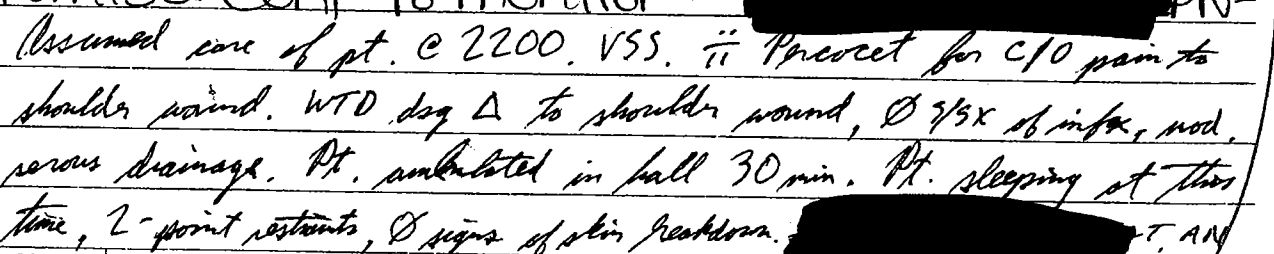 Cont to monitor PN-
Assumed care of pt. @ 2200. VSS. ii Percocet for C/O pain to
shoulder wound. WTD dsg Δ to shoulder wound, Ø s/sx of infx, mod.
serous drainage. Pt. ambulated in hall 30 min. Pt. sleeping at this
time, 2-point restraints, Ø signs of skin breakdown.